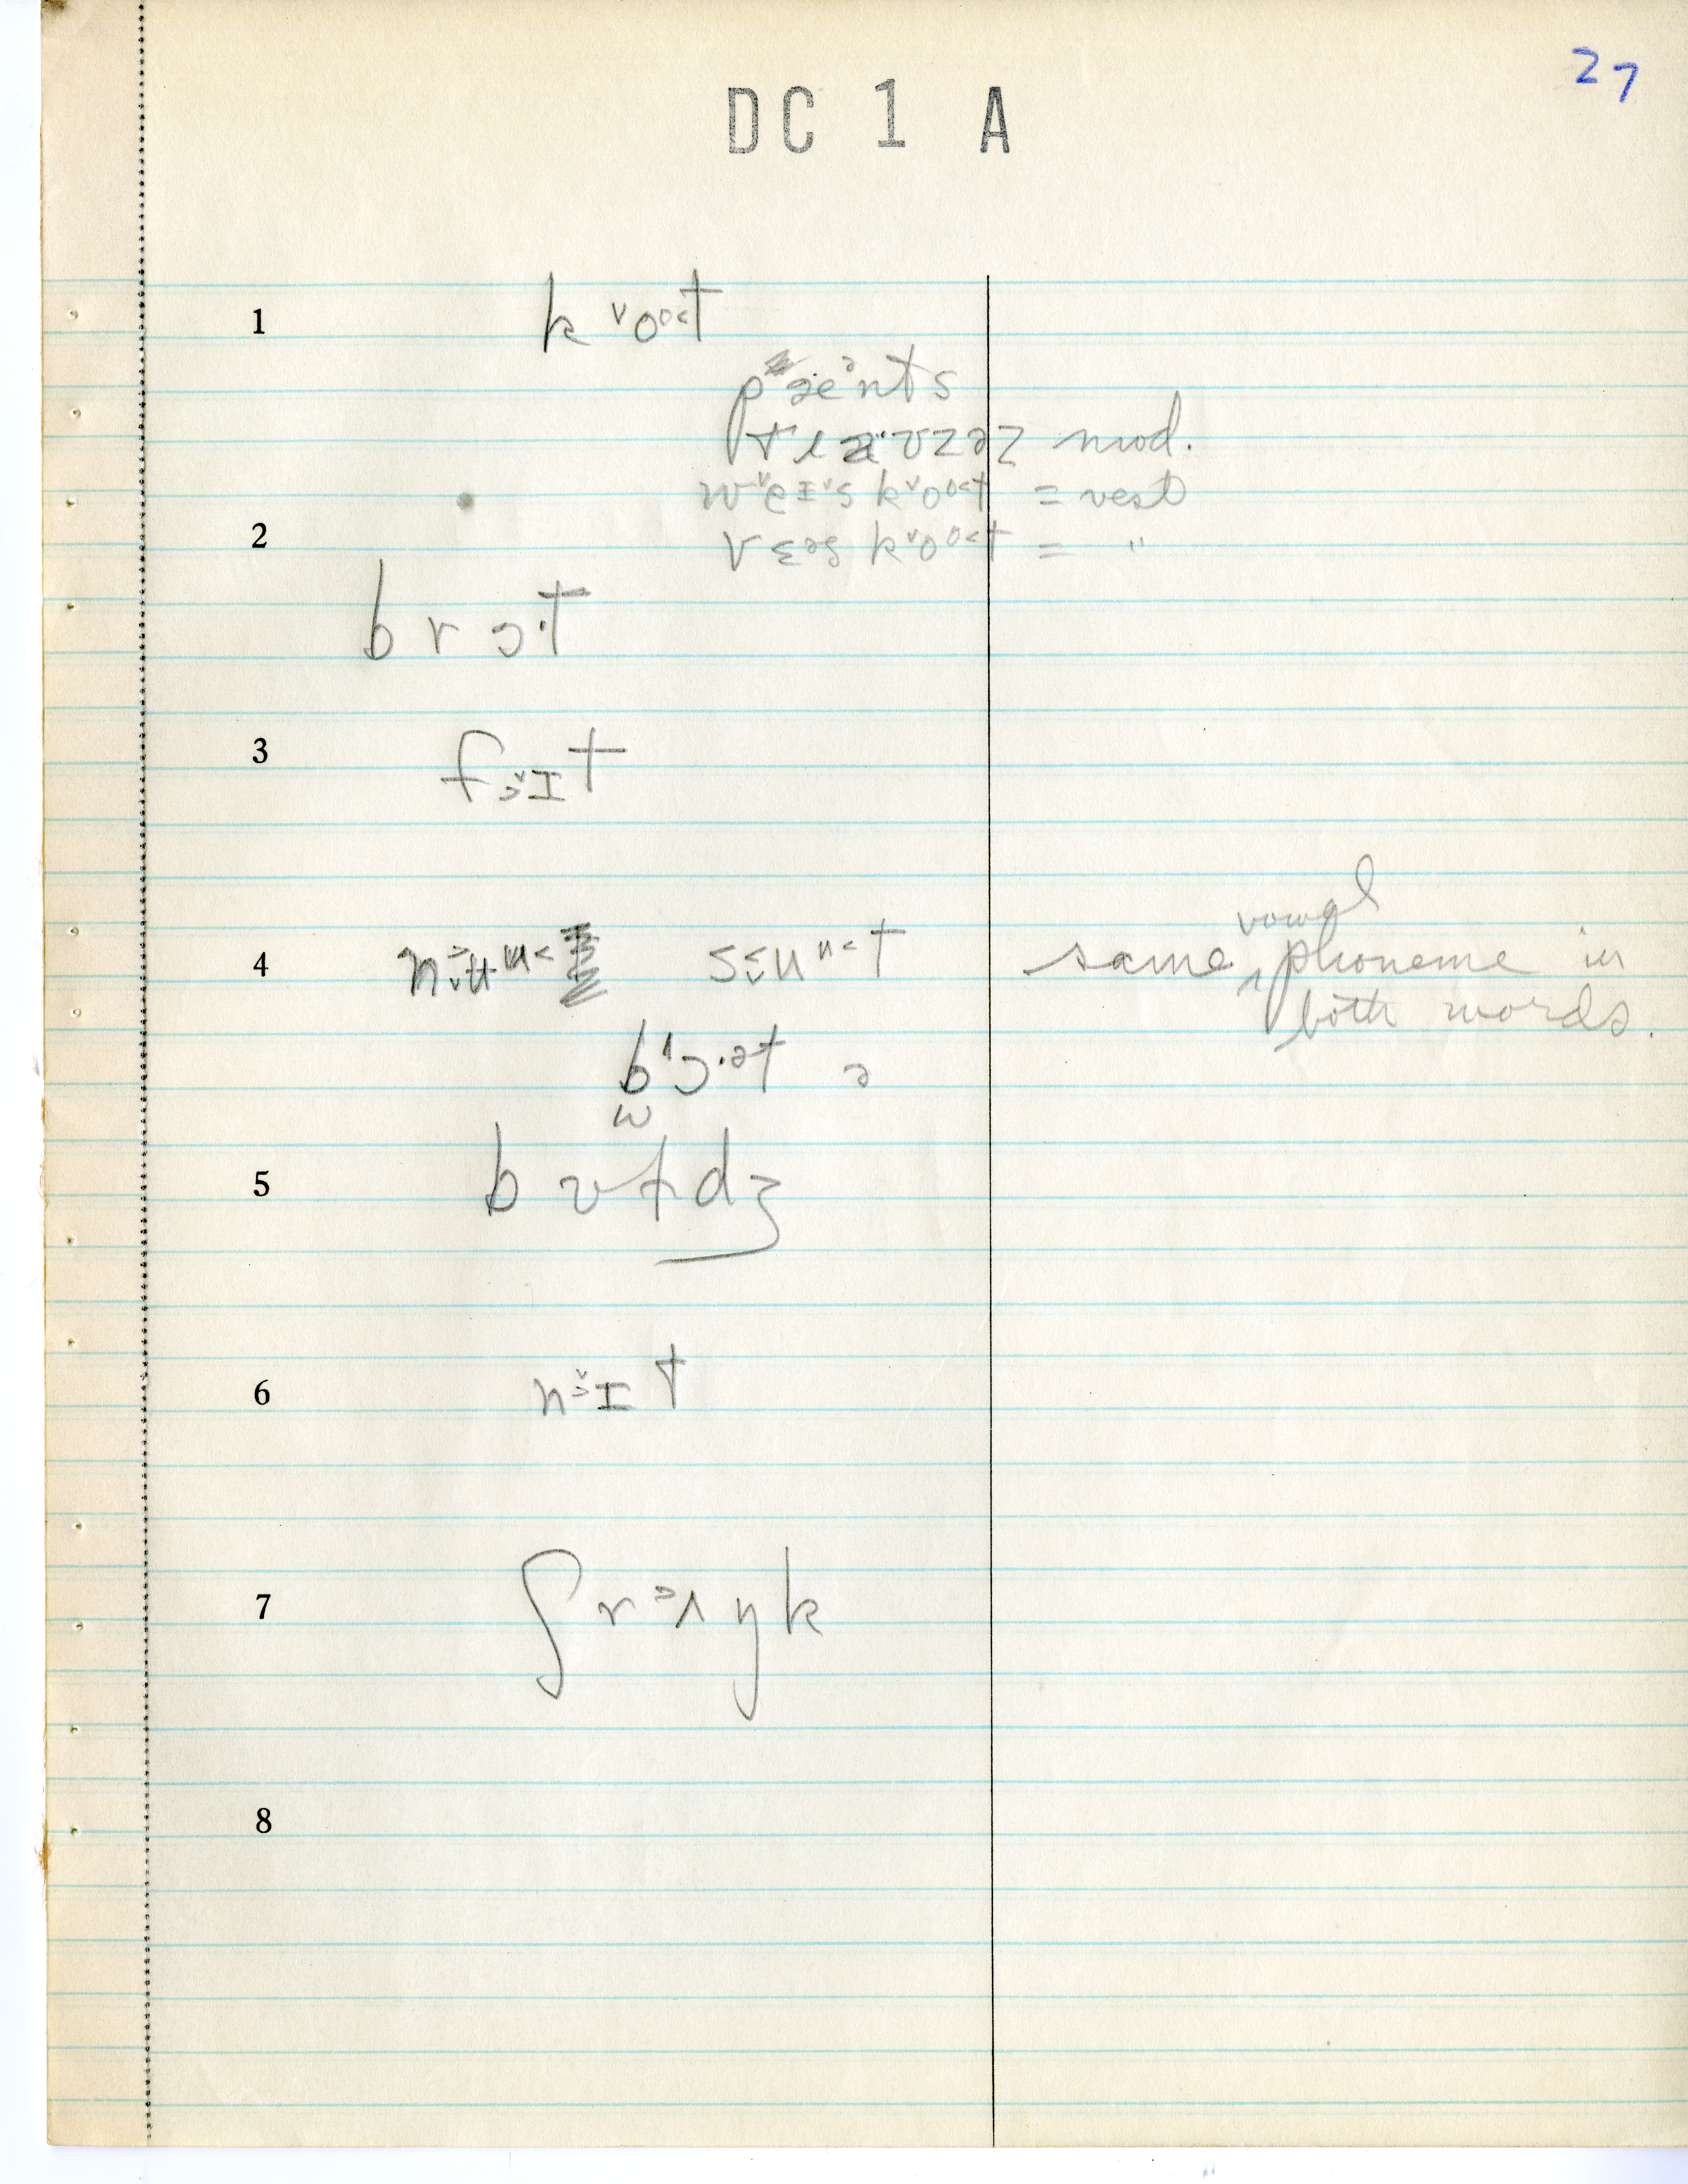 27
DC 1 A
1 k ˅oo˂t
pæᵊnts
mod.
k˅oo˂t = vest
v ɛəs k˅oo˂t = "
2
b r ɔ·t
3 f ɔ˅ɪ t
4 sɛʉʉ˂t same vowel phoneme in
both words.
b˄ɔ·ət ə
5 b dʒ
6 n ɔ˅ɪ t
7 ʃ r ɔʌ ŋ k
8